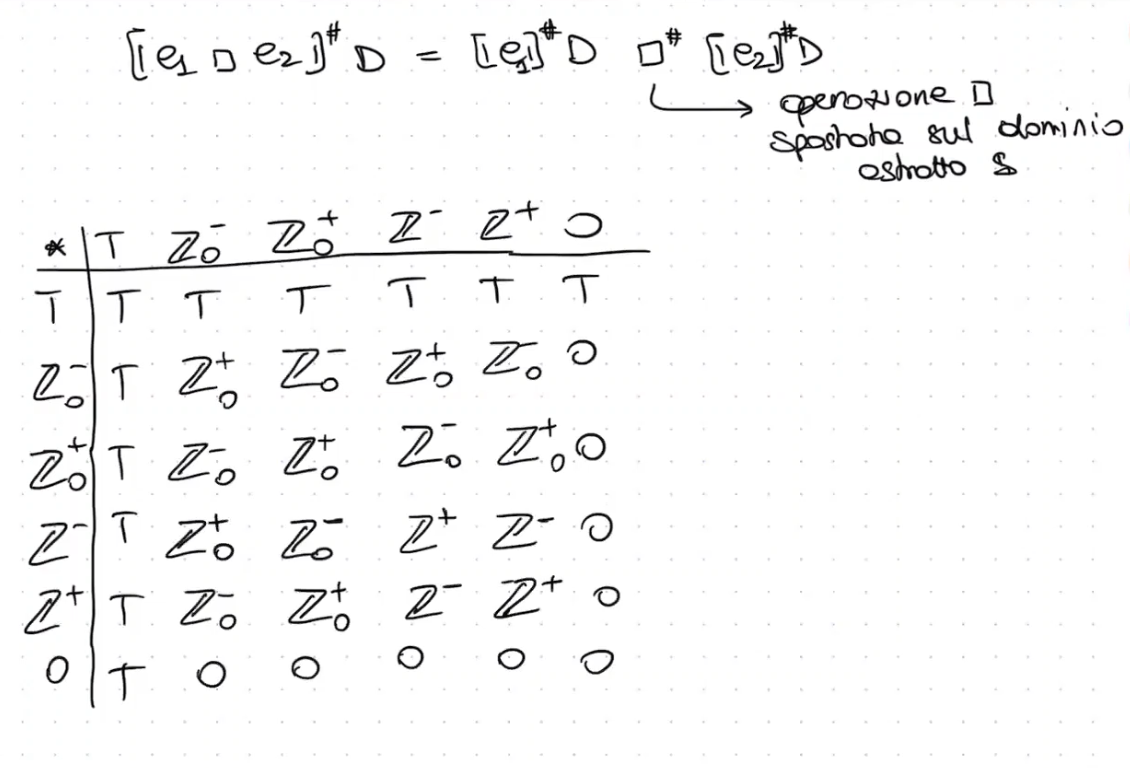 [[e₁ □ e₂]]^# D = [[e₁]]^# D □^# [[e₂]]^# D
operazione □
spostata sul dominio
astratto S
* | T Z₀⁻ Z₀⁺ Z⁻ Z⁺ 0
T | T T T T T T
Z₀⁻ | T Z₀⁺ Z₀⁻ Z₀⁺ Z₀⁻ 0
Z₀⁺ | T Z₀⁻ Z₀⁺ Z₀⁻ Z₀⁺ 0
Z⁻ | T Z₀⁺ Z₀⁻ Z⁺ Z⁻ 0
Z⁺ | T Z₀⁻ Z₀⁺ Z⁻ Z⁺ 0
0 | T 0 0 0 0 0